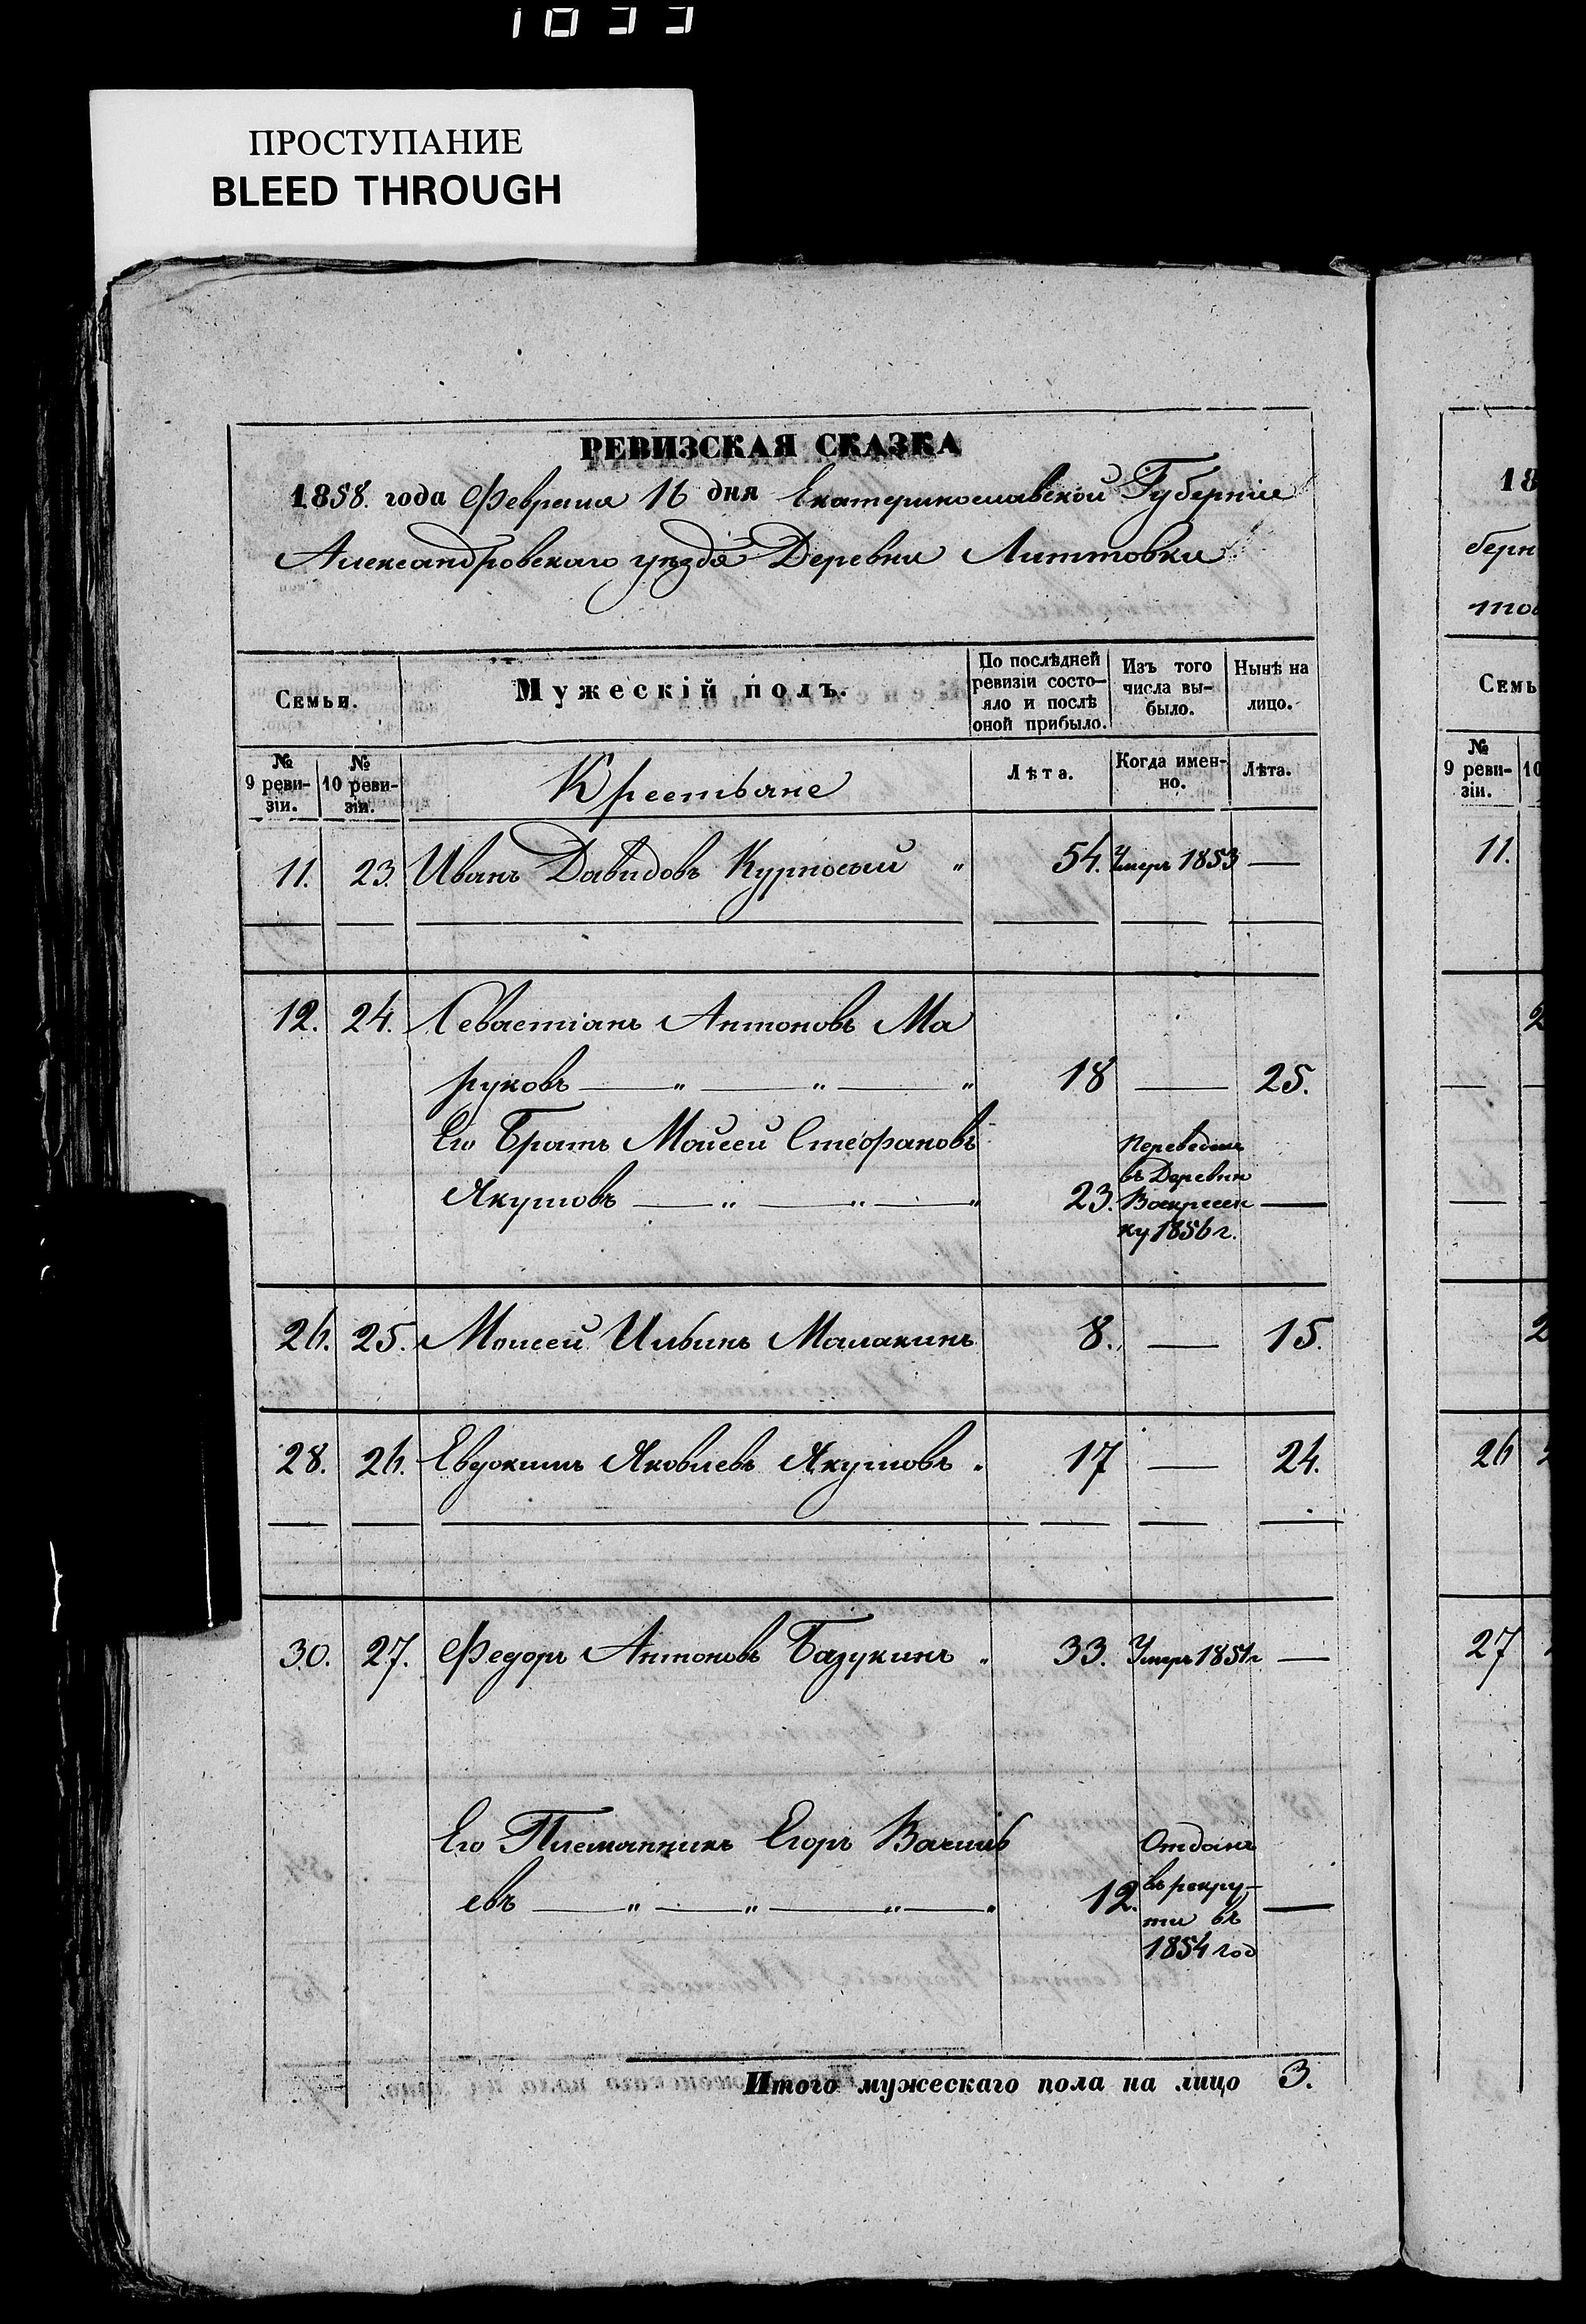 1033
ПРОСТУПАНИЕ
BLEED THROUGH
РЕВИЗСКАЯ СКАЗКА
1858. года Февраля 16 дня Екатеринославской Губерніи
Александровскаго уѣзда Деревни Литтовки
Семьи.
Мужескій полъ.
По послѣдней ревизіи состояло и послѣ оной прибыло.
Изъ того числа выбыло.
Нынѣ на лицо.
№ 9 ревизіи.
№ 10 ревизіи.
Крестьяне
Лѣта.
Когда именно.
Лѣта.
11. 23. Иванъ Давидовъ Курносый " 54. Умеръ 1853 —
12. 24. Севастіанъ Антоновъ Ма
руковъ — " — " — " 18 — 25.
Его Братъ Моисей Стефановъ
Якушовъ — " — " — " 23. Переведенъ въ Деревню Воскресенку 1856 г. —
26. 25. Моисей Ильинъ Малакинъ 8. — 15.
28. 26. Евдокимъ Яковлевъ Якушовъ " 17 — 24.
30. 27. Федоръ Антоновъ Базукинъ " 33. Умеръ 1851 г —
Его Племянникъ Егоръ Васильевъ — " — " — " — " 12. Отданъ въ рекруты въ 1854 год —
Итого мужескаго пола на лицо 3.
18
берн
тов
Семь
№
9 реви-
зіи.
10
11.
26
27